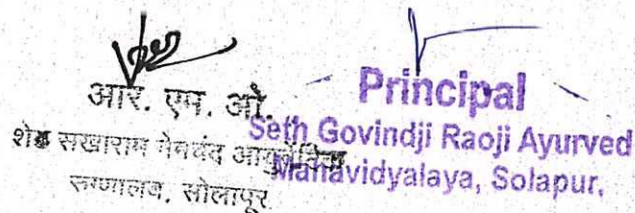 आर. एम. ओ.
शेठ सखाराम नेमचंद आयुर्वेदिक
रुग्णालय, सोलापूर
Principal
Seth Govindji Raoji Ayurved
Mahavidyalaya, Solapur.